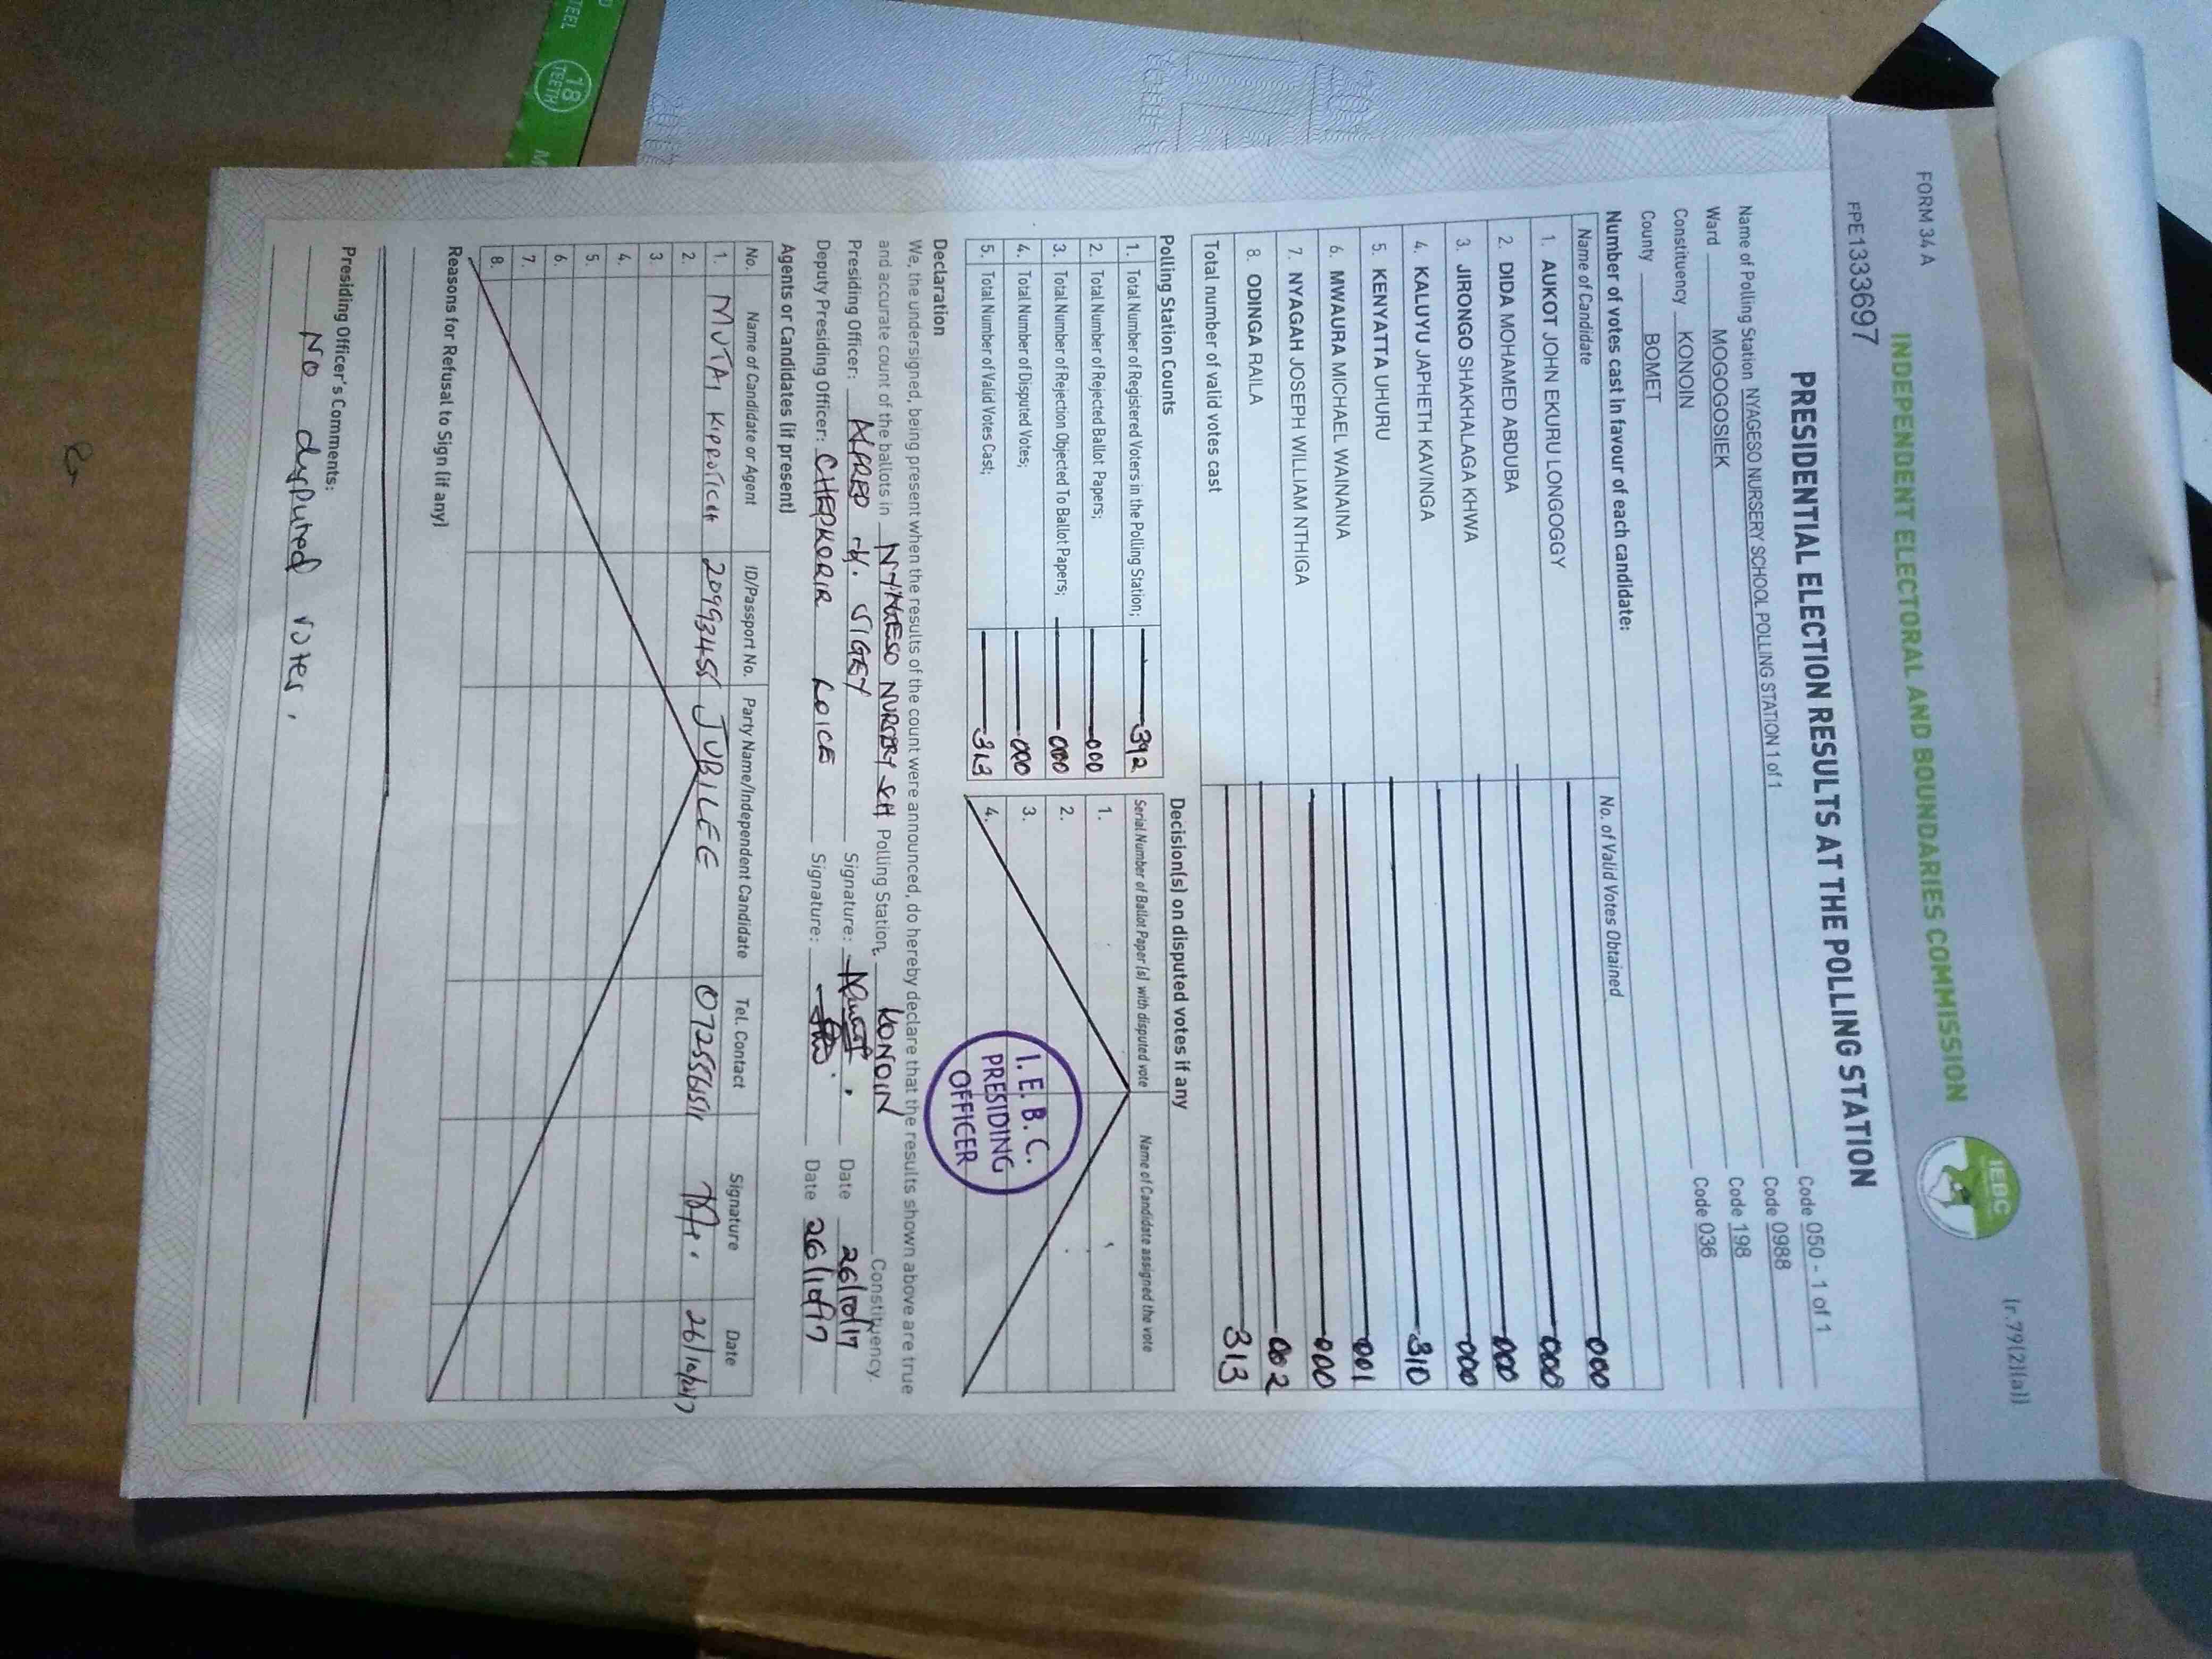 FORM 34 A
(r.79(2)(a))
INDEPENDENT ELECTORAL AND BOUNDARIES COMMISSION
IEBC
FPE1333697
PRESIDENTIAL ELECTION RESULTS AT THE POLLING STATION
Name of Polling Station NYAGESO NURSERY SCHOOL POLLING STATION 1 of 1 Code 050 - 1 of 1
Ward MOGOGOSIEK Code 0988
Constituency KONOIN Code 198
County BOMET Code 036
Number of votes cast in favour of each candidate:
Name of Candidate No. of Valid Votes Obtained
1. AUKOT JOHN EKURU LONGOGGY 000
2. DIDA MOHAMED ABDUBA 000
3. JIRONGO SHAKHALAGA KHWA 000
4. KALUYU JAPHETH KAVINGA 000
5. KENYATTA UHURU 310
6. MWAURA MICHAEL WAINAINA 001
7. NYAGAH JOSEPH WILLIAM NTHIGA 000
8. ODINGA RAILA 002
Total number of valid votes cast 313
Polling Station Counts
1. Total Number of Registered Voters in the Polling Station; 392
2. Total Number of Rejected Ballot Papers; 000
3. Total Number of Rejection Objected To Ballot Papers; 000
4. Total Number of Disputed Votes; 000
5. Total Number of Valid Votes Cast; 313
Decision(s) on disputed votes if any
Serial Number of Ballot Paper(s) with disputed vote Name of Candidate assigned the vote
1.
2.
3.
4.
I.E.B.C.
PRESIDING
OFFICER
Declaration
We, the undersigned, being present when the results of the count were announced, do hereby declare that the results shown above are true
and accurate count of the ballots in NYAGESO NURSERY SCH Polling Station, KONOIN Constituency.
Presiding Officer: ALFRED K. SIGEY Signature: Date 26/10/17
Deputy Presiding Officer: CHEPKORIR LOICE Signature: Date 26/10/17
Agents or Candidates (if present)
No. Name of Candidate or Agent ID/Passport No. Party Name/Independent Candidate Tel. Contact Signature Date
1. MUTAI KIPROTICH JUBILEE 26/10/2017
2.
3.
4.
5.
6.
7.
8.
Reasons for Refusal to Sign (if any)
Presiding Officer's Comments:
No disputed votes.
TEEL
18
TEETH
M